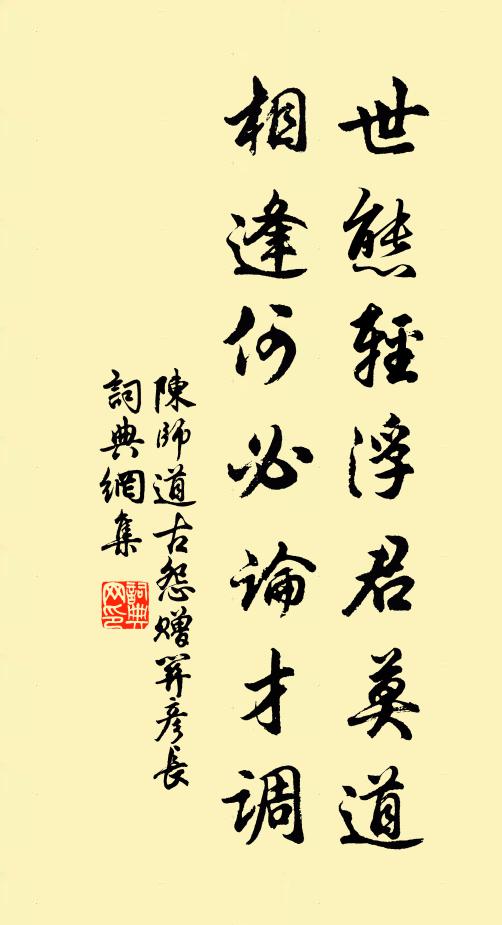 世態輕浮君莫道
相逢何必論才調
陳師道古怨贈幷彥長
詞典網集
詞典
网印